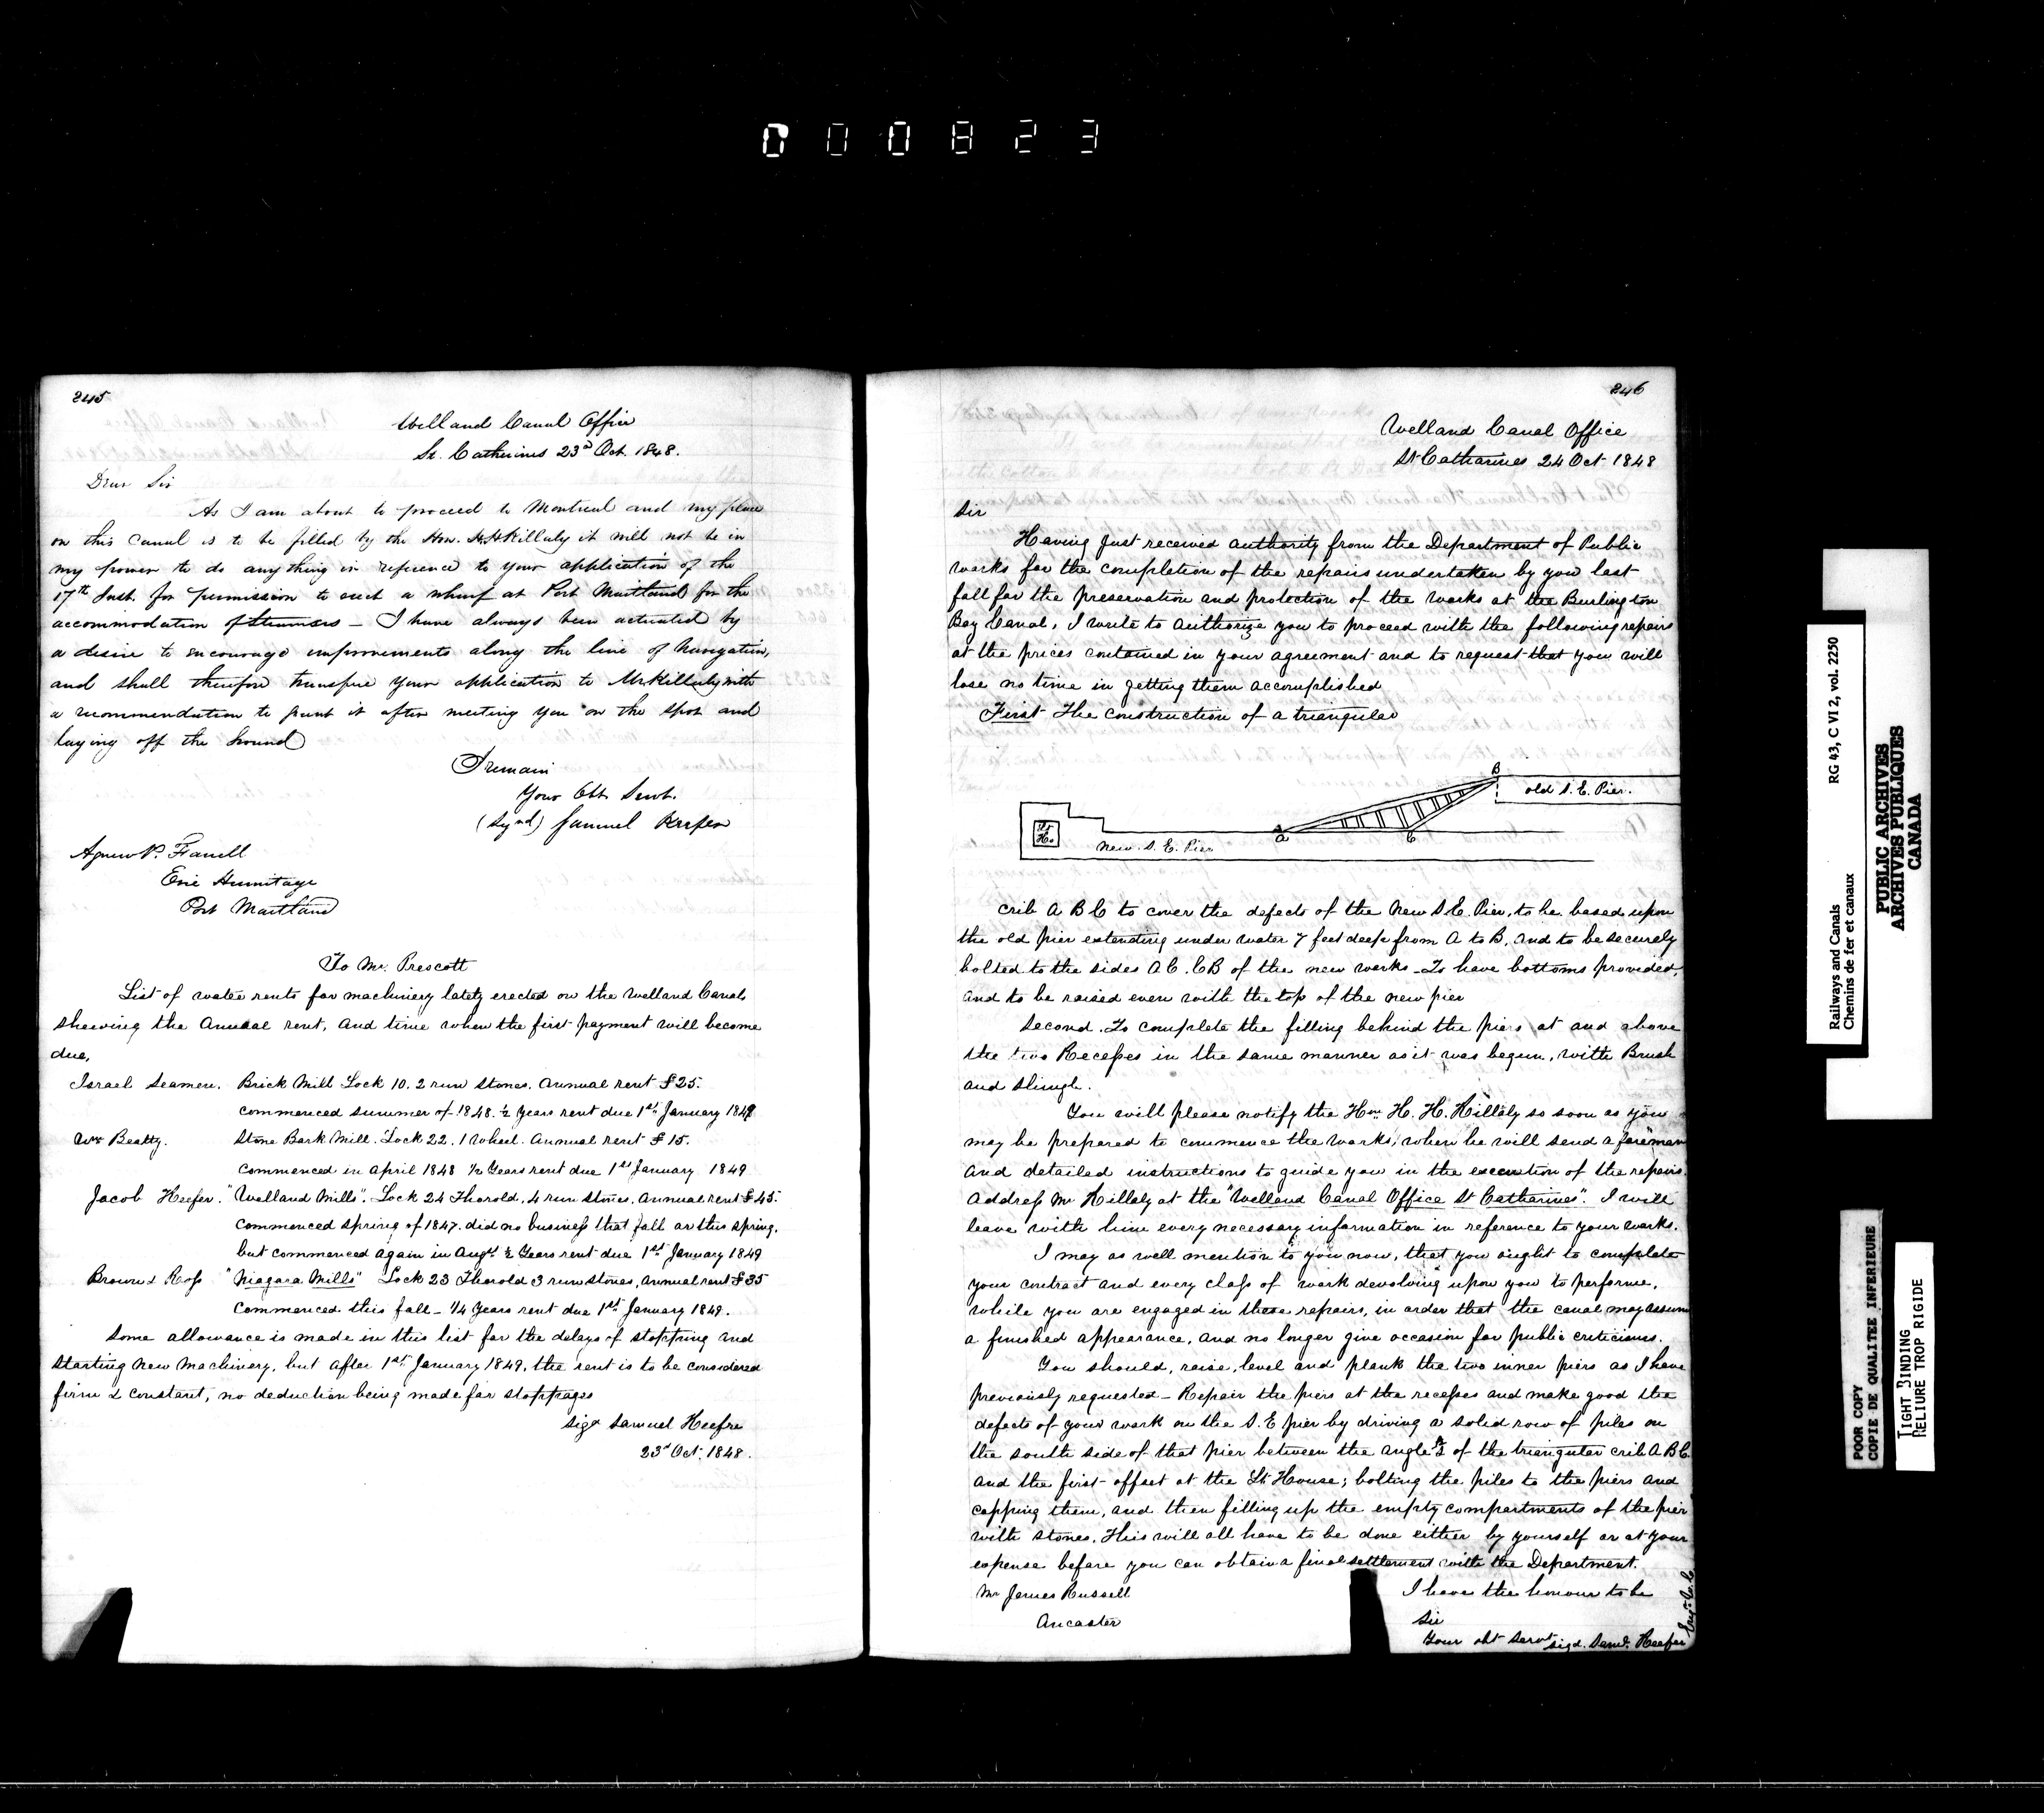 000823
245
Welland Canal Office
St. Catherines 23d Oct. 1848.
Dear Sir
As I am about to proceed to Montreal and my place
on this Canal is to be filled by the Hon. H. H. Killaly it will not be in
my power to do any thing in reference to your application of the
17th Inst. for permission to erect a wharf at Port Maitland for the
accommodation of steamers – I have always been actuated by
a desire to encourage improvements along the line of Navigation,
and shall therefore transfer your application to Mr Killaly with
a recommendation to grant it after meeting you on the spot and
laying off the Ground
I remain
Your Obt. Servt.
(Sgnd) Samuel Keefer
Agnew P. Farrell
Erie Hermitage
Port Maitland
To Mr. Prescott
List of water rents for machinery lately erected on the Welland Canal,
shewing the Annual rent, and time when the first payment will become
due,
Israel Seamen. Brick Mill Lock 10. 2 run stones. Annual rent £25.
Commenced summer of 1848. ½ Years rent due 1st January 1849
Wm Beatty. Stone Bark Mill. Lock 22. 1 Wheel. Annual rent £15.
Commenced in April 1848 ½ Years rent due 1st January 1849
Jacob Keefer. "Welland Mills". Lock 24 Thorold, 4 run stones, Annual rent £45.
Commenced spring of 1847. did no business that fall or this spring,
but commenced again in Augt. ½ Years rent due 1st January 1849
Brown & Ross "Niagara Mills" Lock 23 Thorold 3 run stones, Annual rent £35
Commenced this fall – ¼ Years rent due 1st January 1849.
Some allowance is made in this list for the delays of stopping and
starting New Machinery, but after 1st January 1849, the rent is to be considered
firm & constant, no deduction being made for stoppages
Sigd Samuel Keefer
23d Oct. 1848.
246
Welland Canal Office
St Catharines 24 Oct 1848
Sir
Having Just received authority from the Department of Public
Works for the completion of the repairs undertaken by you last
fall for the preservation and protection of the works at the Burlington
Bay Canal, I write to authorize you to proceed with the following repairs
at the prices contained in your agreement and to request that you will
lose no time in getting them accomplished
First The construction of a triangular
B
old S. E. Pier.
Lt Ho.
A
C
New. S. E. Pier
crib A B C to cover the defects of the New S E. Pier, to be based upon
the old pier extending under water 7 feet deep from A to B, and to be securely
bolted to the sides A C. C B of the new works – To have bottoms provided,
and to be raised even with the top of the new pier
Second. To complete the filling behind the piers at and above
the two Recesses in the same manner as it was begun, with Brush
and shingle.
You will please notify the Hon H. H. Killaly so soon as you
may be prepared to commence the works, when he will send a foreman
and detailed instructions to guide you in the execution of the repairs.
Address Mr Killaly at the "Welland Canal Office St Catharines". I will
leave with him every necessary information in reference to your works.
I may as well mention to you now, that you ought to complete
your contract and every class of work devolving upon you to perform,
while you are engaged in these repairs, in order that the canal may assum
a finished appearance, and no longer give occasion for public criticisms.
You should, raise, level and plank the two inner piers as I have
previously requested – Repair the piers at the recesses and make good the
defects of your work on the S. E pier by driving a solid row of piles on
the south side of that pier between the angle A of the triangular crib A B C
and the first offset at the Lt House; bolting the piles to the piers and
capping them, and then filling up the empty compartments of the pier
with stones. This will all have to be done either by yourself or at your
expense before you can obtain a final settlement with the Department.
Mr James Russell
Ancaster
I have the honour to be
Sir
Your obt servt sigd. Saml. Keefer
RG 43, C VI 2, vol. 2250
Railways and Canals
Chemins de fer et canaux
PUBLIC ARCHIVES
ARCHIVES PUBLIQUES
CANADA
POOR COPY
COPIE DE QUALITEE INFERIEURE
TIGHT BINDING
RELIURE TROP RIGIDE